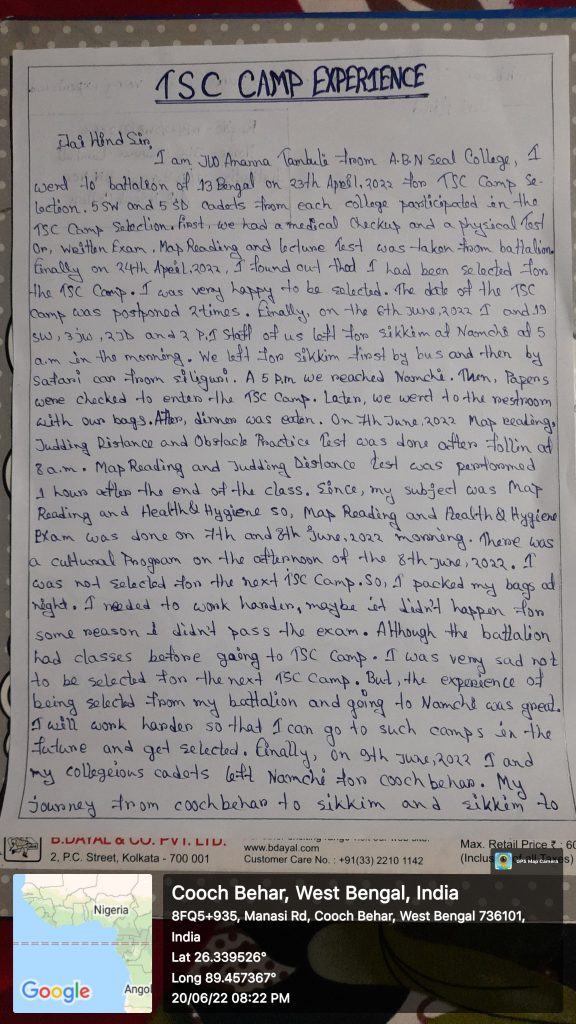 TSC CAMP EXPERIENCE
Jai Hind Sir,
I am JUO Ananna Tambuli from A.B.N Seal College, I
went to battalion of 13 Bengal on 23th April, 2022 for TSC Camp Se-
lection. 5 SW and 5 SD cadets from each college participated in the
TSC Camp Selection. First, we had a medical checkup and a physical Test
Or, Written Exam, Map Reading and lecture Test was taken from battalion.
Finally on 24th April, 2022, I found out that I had been selected for
the TSC Camp. I was very happy to be selected. The date of the TSC
Camp was postponed 2 times. Finally, on the 6th June, 2022 I and 19
SW, 3 JW, 2 JD and 2 P.I Staff of us left for sikkim at Namchi at 5
a.m in the morning. We left for sikkim first by bus and then by
Safari car from siliguri. A 5 P.M we reached Namchi. Then, Papers
were checked to enter the TSC Camp. Later, we went to the restroom
with our bags. After, dinner was eaten. On 7th June, 2022 Map reading,
Judding Distance and Obstacle Practice Test was done after follin at
8 a.m. Map Reading and Judding Distance test was performed
1 hour after the end of the class. Since, my subject was Map
Reading and Health & Hygiene so, Map Reading and Health & Hygiene
Exam was done on 7th and 8th June, 2022 morning. There was
a cultural Program on the afternoon of the 8th June, 2022. I
was not selected for the next TSC Camp. So, I packed my bags at
night. I needed to work harder, maybe it didn't happen for
some reason I didn't pass the exam. Although the battalion
had classes before going to TSC Camp. I was very sad not
to be selected for the next TSC Camp. But, the experience of
being selected from my battalion and going to Namchi was great.
I will work harder so that I can go to such camps in the
future and get selected. Finally, on 9th June, 2022 I and
my collegeious cadets left Namchi for coochbehar. My
journey from coochbehar to sikkim and sikkim to
B.DAYAL & CO. PVT. LTD.
2, P.C. Street, Kolkata - 700 001
www.bdayal.com
Customer Care No. : +91(33) 2210 1142
Max. Retail Price ₹ : 60
(Inclus of all Taxes)
GPS Map Camera
Nigeria
Angol
Google
Cooch Behar, West Bengal, India
8FQ5+935, Manasi Rd, Cooch Behar, West Bengal 736101,
India
Lat 26.339526°
Long 89.457367°
20/06/22 08:22 PM